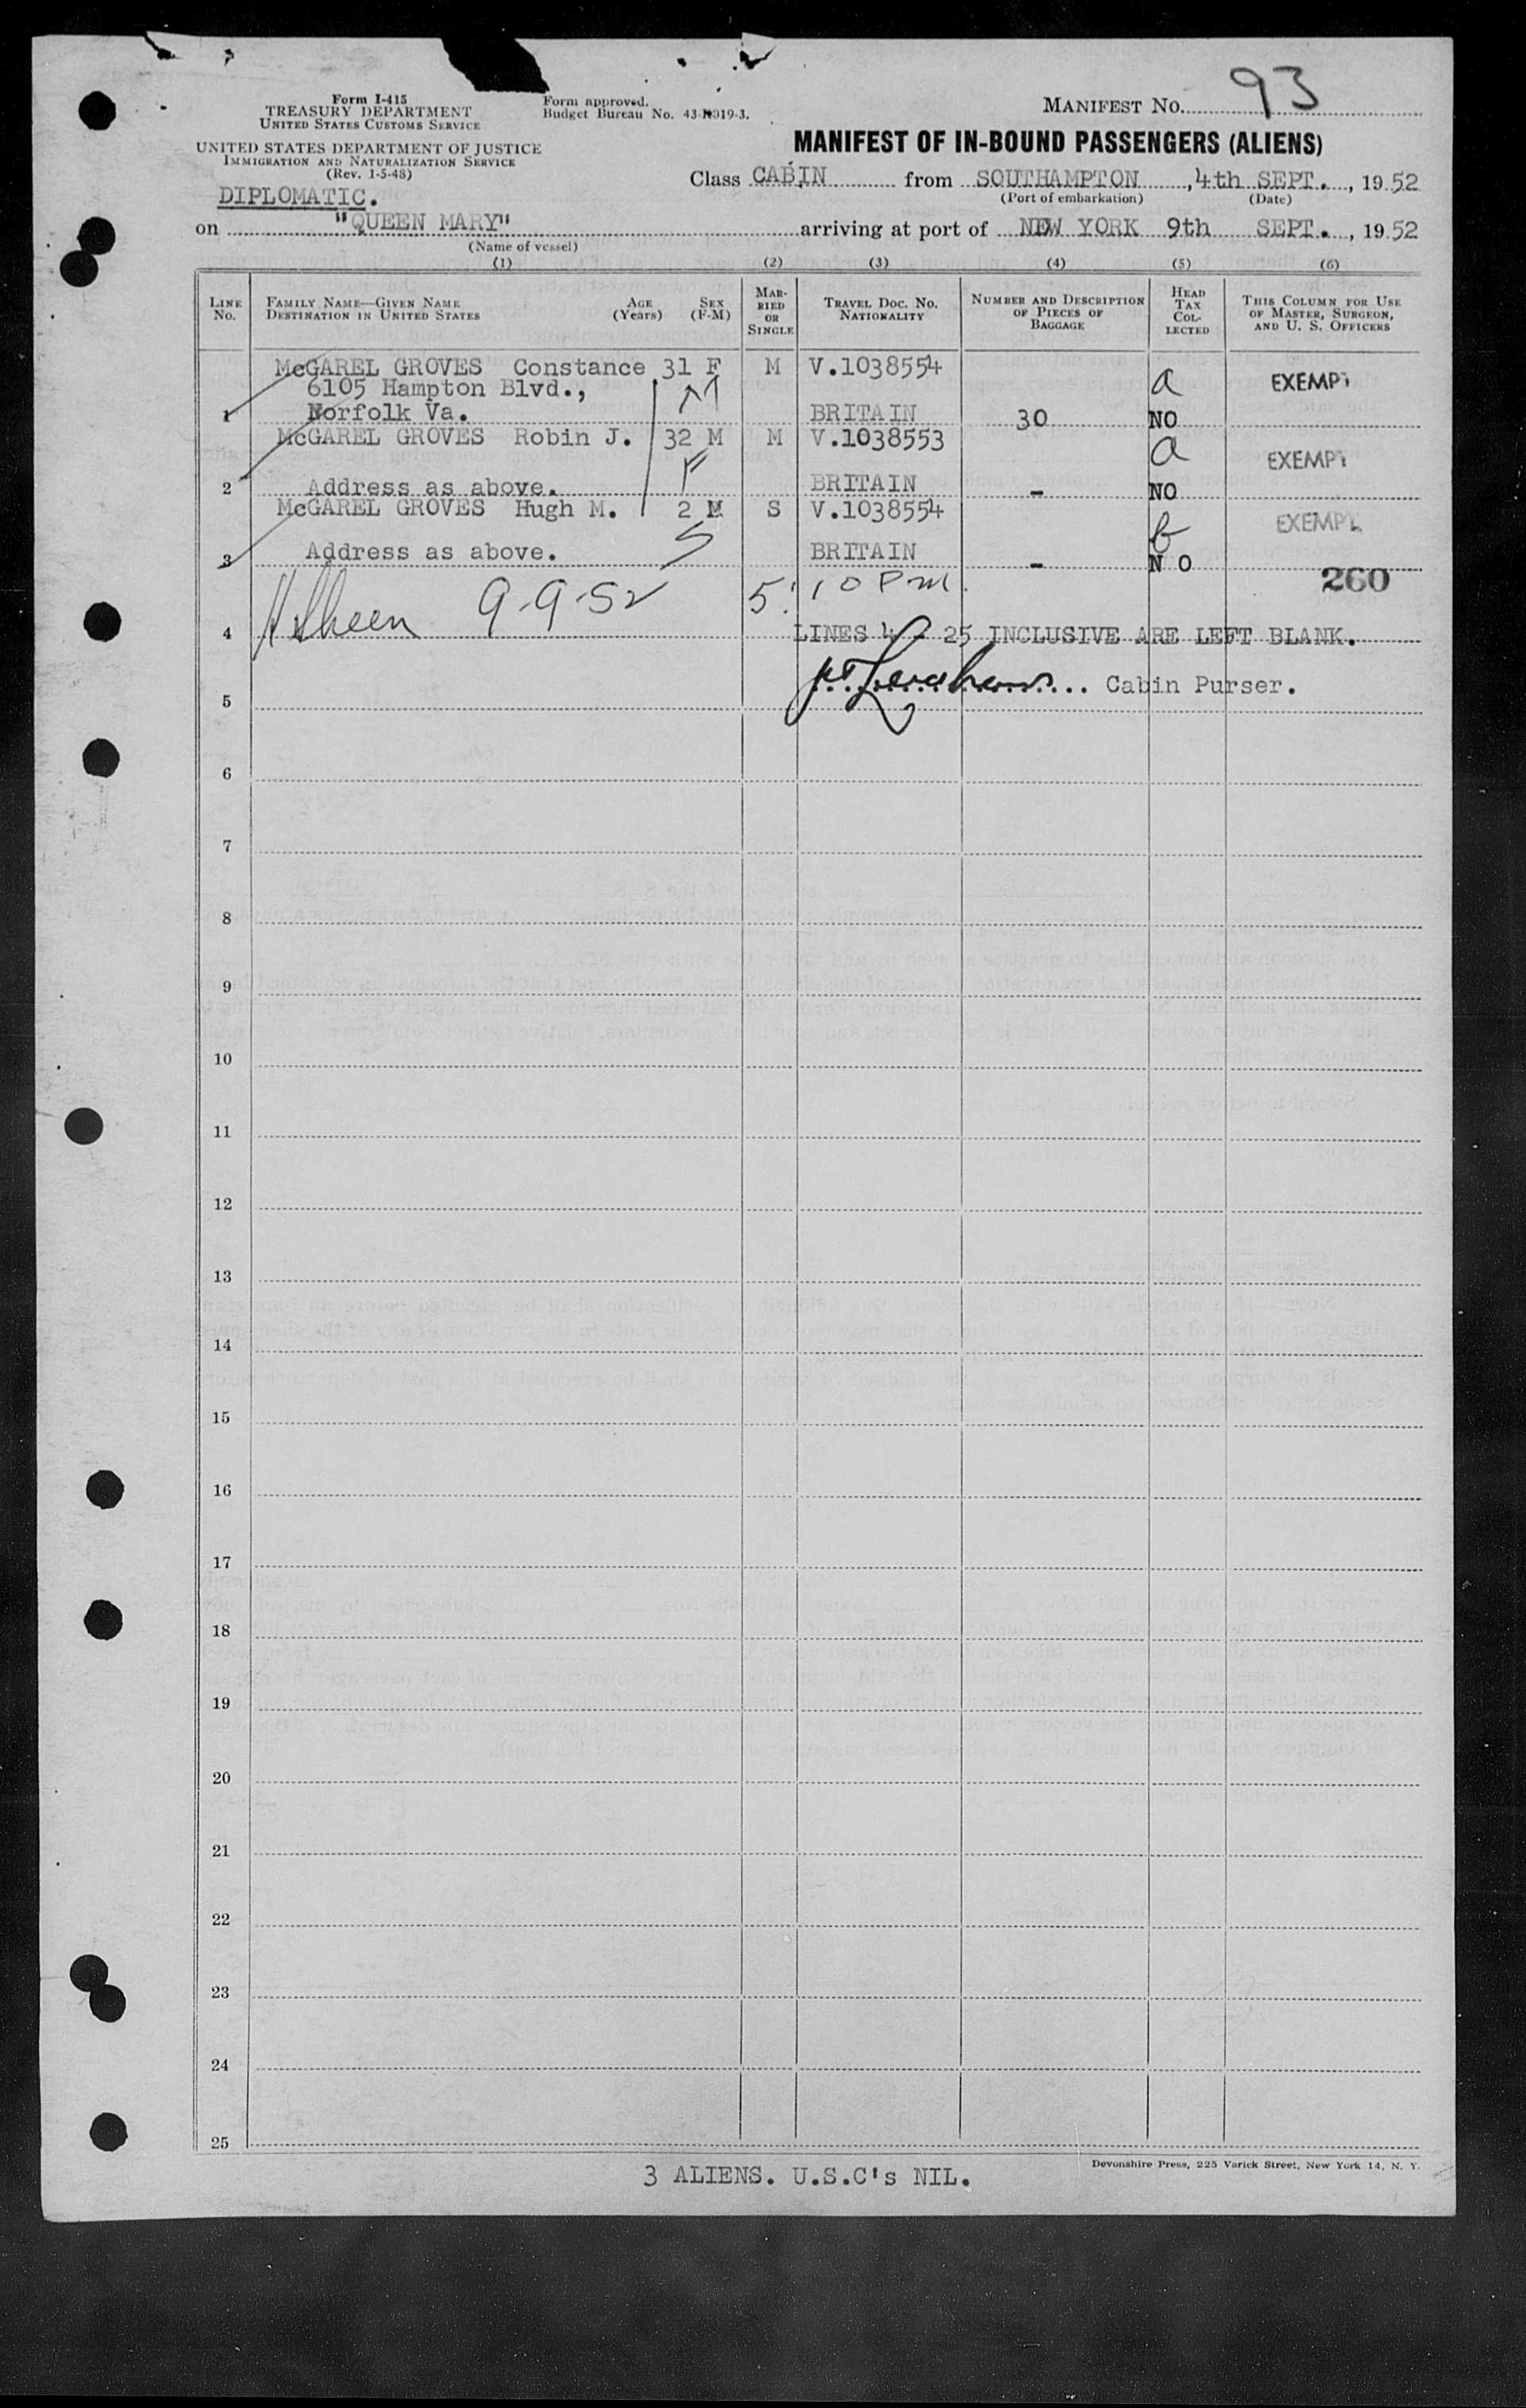 Form I-415
TREASURY DEPARTMENT
UNITED STATES CUSTOMS SERVICE
UNITED STATES DEPARTMENT OF JUSTICE
IMMIGRATION AND NATURALIZATION SERVICE
(Rev. 1-5-48)
Form approved.
Budget Bureau No. 43-R019-3.
MANIFEST NO. 93
MANIFEST OF IN-BOUND PASSENGERS (ALIENS)
DIPLOMATIC.
Class CABIN from SOUTHAMPTON, 4th SEPT., 1952
(Port of embarkation) (Date)
on "QUEEN MARY" arriving at port of NEW YORK 9th SEPT., 1952
(Name of vessel)
(1) (2) (3) (4) (5) (6)
LINE NO.
FAMILY NAME—GIVEN NAME AGE SEX
DESTINATION IN UNITED STATES (Years) (F-M)
MARRIED OR SINGLE
TRAVEL DOC. NO. NATIONALITY
NUMBER AND DESCRIPTION OF PIECES OF BAGGAGE
HEAD TAX COLLECTED
THIS COLUMN FOR USE OF MASTER, SURGEON, AND U. S. OFFICERS
McGAREL GROVES Constance 31 F M V.1038554
6105 Hampton Blvd., M a EXEMPT
1 Norfolk Va. BRITAIN 30 NO
McGAREL GROVES Robin J. 32 M M V.1038553
F a EXEMPT
2 Address as above. BRITAIN - NO
McGAREL GROVES Hugh M. 2 M S V.1038554
S b EXEMPT
3 Address as above. BRITAIN - NO
9-9-52 5:10 PM. 260
4 LINES 4 - 25 INCLUSIVE ARE LEFT BLANK.
5 Cabin Purser.
6
7
8
9
10
11
12
13
14
15
16
17
18
19
20
21
22
23
24
25
3 ALIENS. U.S.C's NIL.
Devonshire Press, 225 Varick Street, New York 14, N. Y.